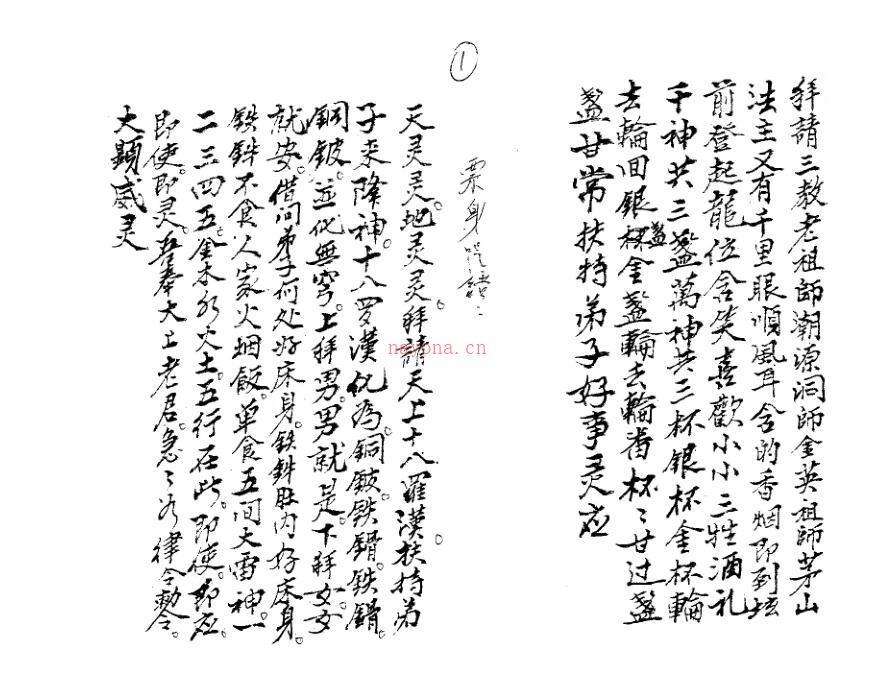 ①
拜請三教老祖師潮源洞師金英祖師茅山
法主又有千里眼順風耳含的香烟即到坛
前登起龍位含笑喜歡小小三牲酒礼
千神共三盏萬神共三杯銀杯金杯輪
去輪回銀杯金盏輪去輪番杯〻甘过盏
盏
盏甘常扶持弟子好事灵应
身
天灵灵。地灵灵。拜請天上十八羅漢扶持弟。
子来降神。十八罗漢化為銅鈹。铁鎖铁鎖。
銅鈹。並化無穷。上拜男。男就是。下拜女。女
就安。借问弟子何处好床身。铁鉎肚内好床身。
铁鉎不食人家火烟飯。单食五间大雷神。一
二三四五。金木水火土。五行在此。即使。即应。
即使。即灵。吾奉太上老君。急〻如律令勅令。
大顯威灵
nayona.cn